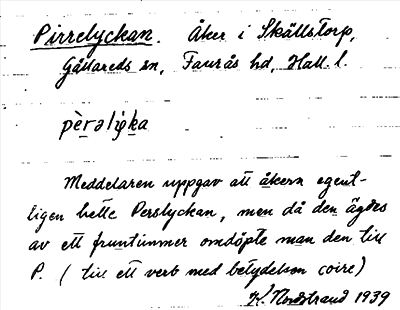 Pirrelyckan. Åker i Skällstorp,
Gällareds sn, Faurås hd, Hall. l.
pèrəlyka
Meddelaren uppgav att åkern egent-
ligen hette Perslyckan, men då den ägdes
av ett fruntimmer omdöpte man den till
P. (till ett verb med betydelsen coire)
K. Nordstrand 1939